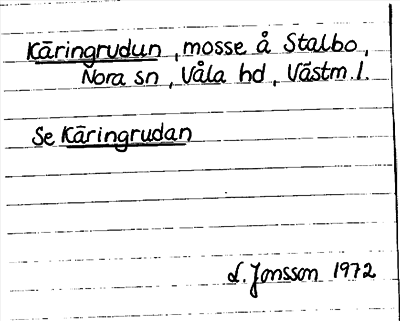 Käringrudun, mosse å Stalbo,
Nora sn, Våla hd, Västm.l.
Se Käringrudan
L. Jonsson 1972